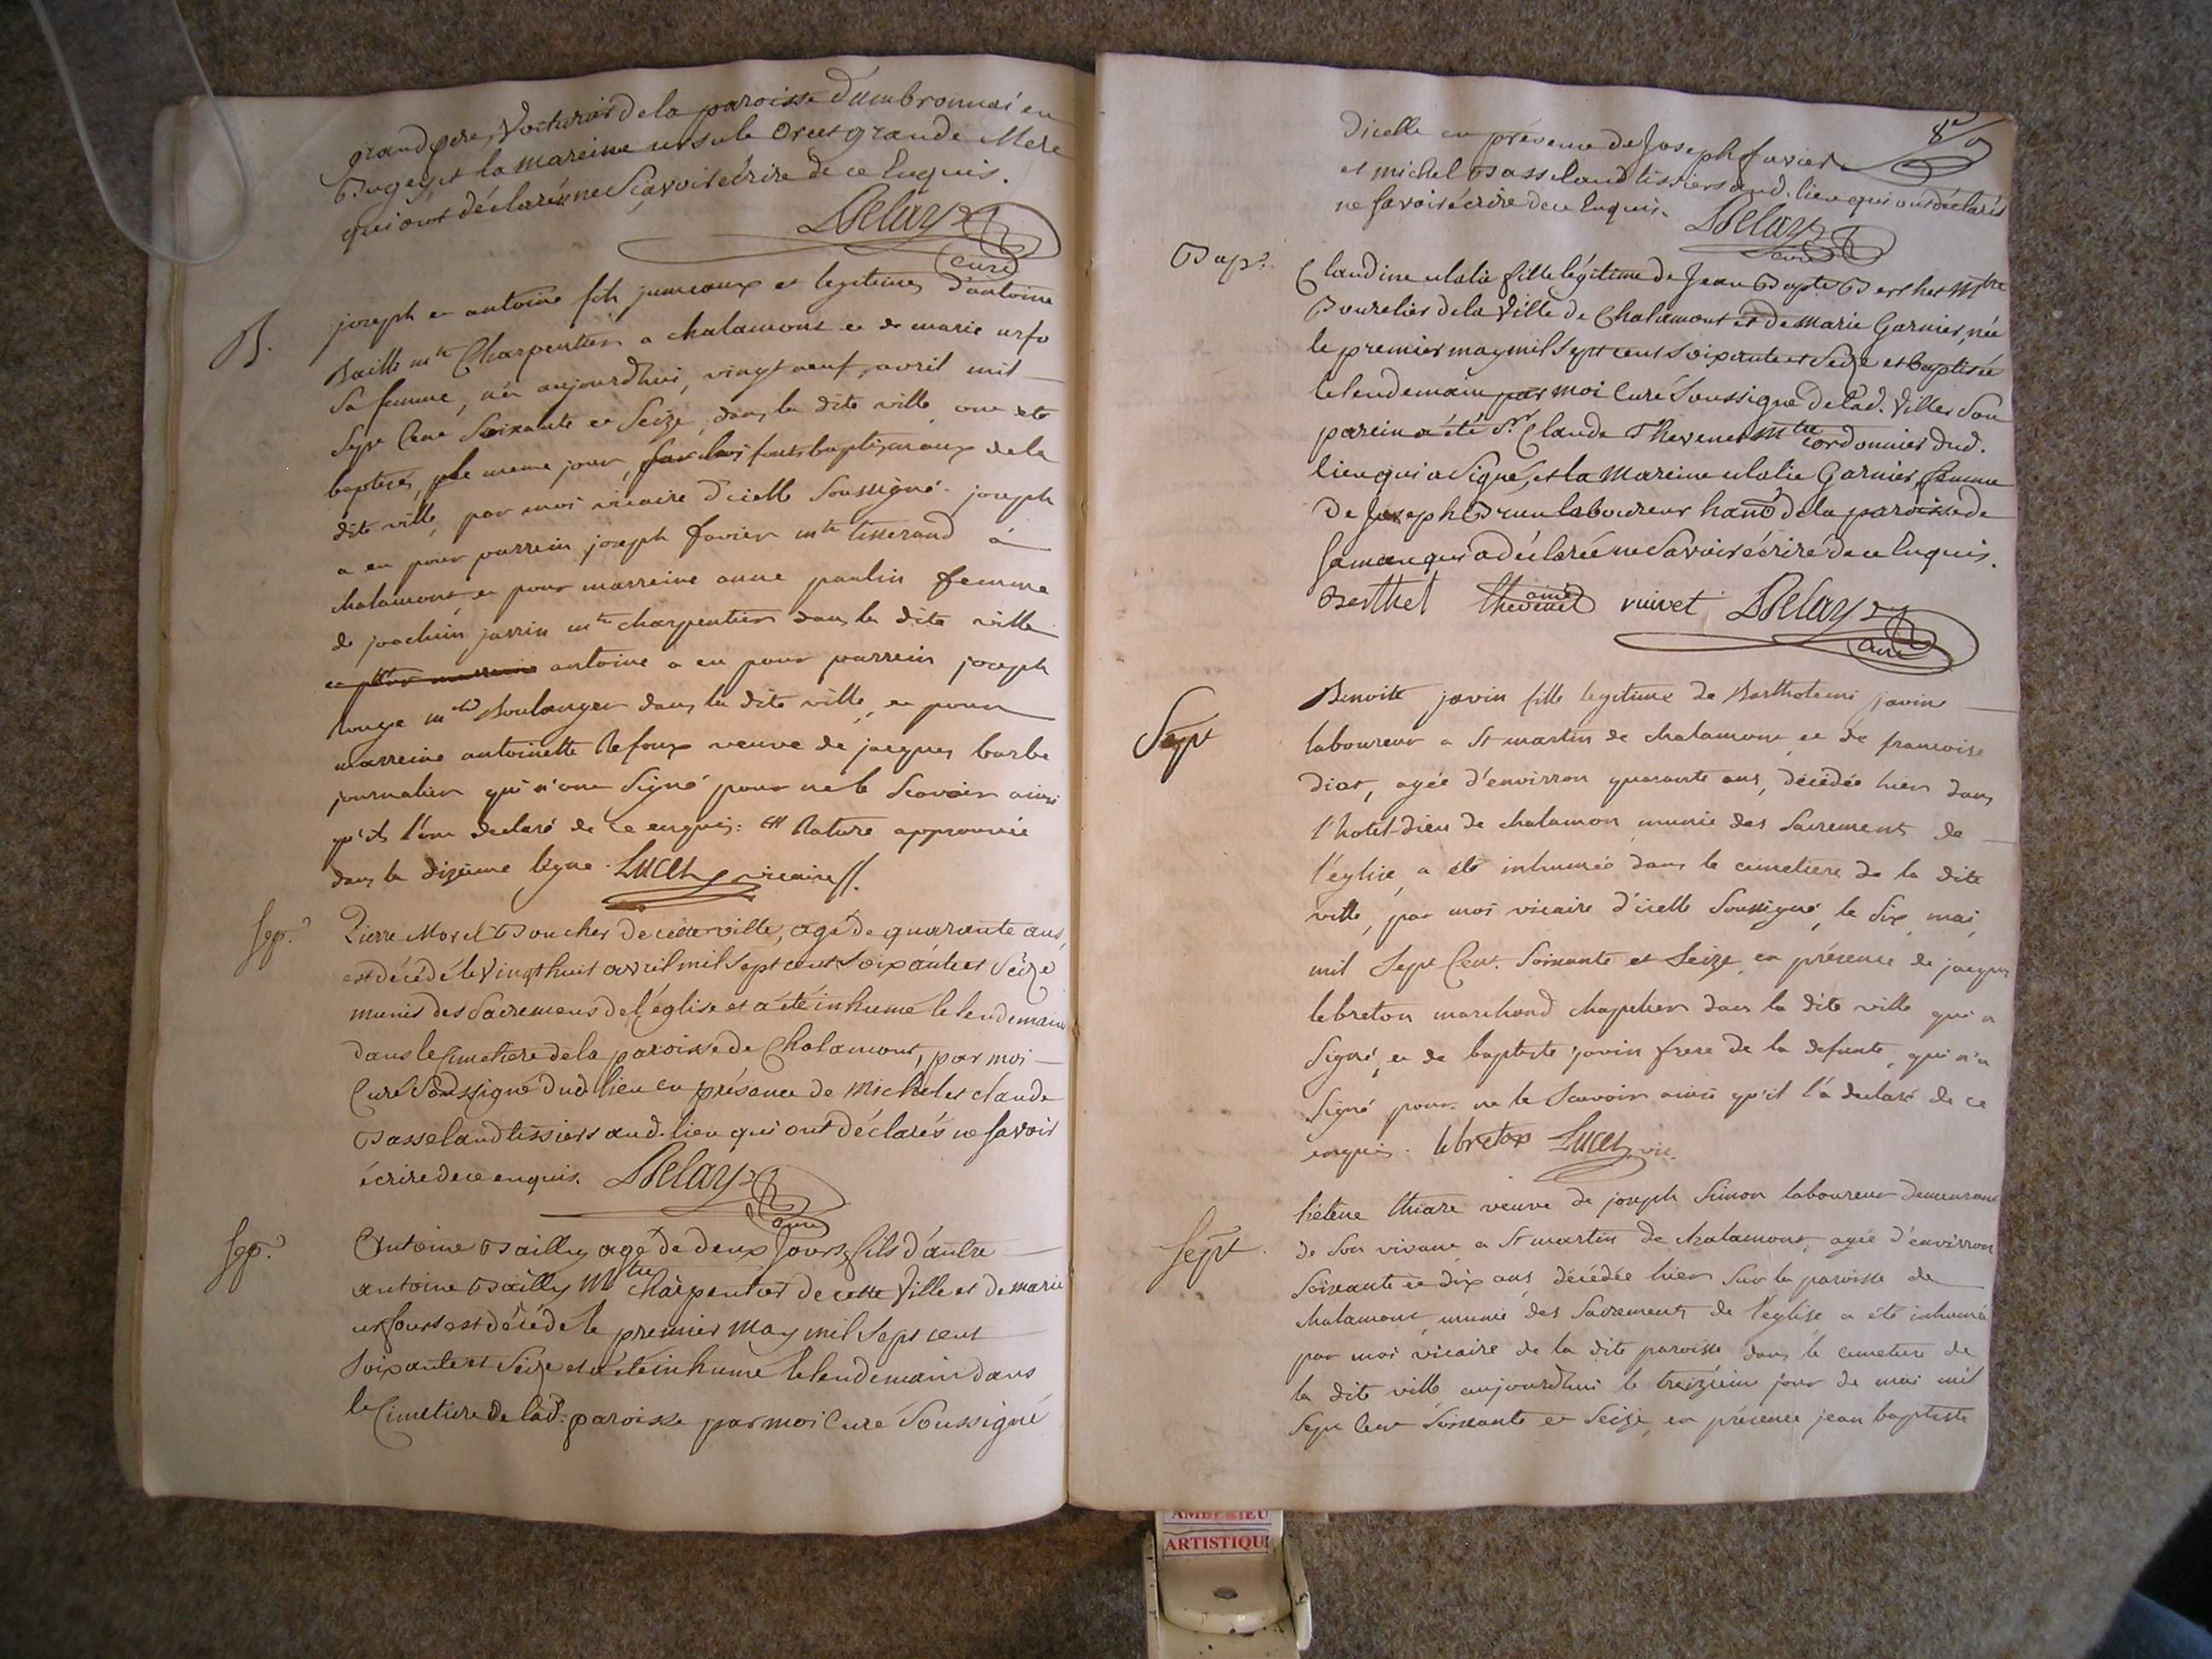 grand pere, Voiturier de la paroisse d'ambronnai en
Bugey, et la mareine ursule Orcet grande Mere
qui ont déclarés ne Sçavoir écrire de ce Enquis.
Delay
curé
B.
joseph et antoine fils jumeaux et legitimes d'antoine
Bailli mtre Charpentier a chalamont et de marie urfo
Sa femme, nés aujourdhui, vingt neuf, avril mil
Sept Cent Soixante et Seize, dans la dite ville, ont été
baptisés, le meme jour, fonts baptismaux de la
dite ville, par moi vicaire d'icelle Soussigné. joseph
a eu pour parrein joseph favier mtre tisserand à
chalamont et pour marreine anne paulin femme
de joachim jarrin mtre charpentier dans la dite ville
et pour marreine antoine a eu pour parrein joseph
rouge mtre Boulanger dans la dite ville, et pour
marreine antoinette Refoux veuve de jacques barbe
journalier qui n'ont Signé pour ne le Scavoir ainsi
qu'ils l'ont declaré de ce enquis: Rature approuvée
dans la dizieme ligne. Lucet vicaire
Sep.
Pierre Morel Boucher de cette ville, agé de quarante ans,
est décédé le vingt huit avril mil Sept cent Soixante et Seize
munis des Sacremens de l'église et a été inhumé le lendemain
dans le Cimetiere de la paroisse de Chalamont, par moi
Curé Soussigné dud. lieu en présance de Michel et claude
Basseland tissiers aud. lieu qui ont déclarés ne Savoir
écrire de ce enquis. Delay
curé
Sep.
Antoine Bailly agé de deux Jours, fils d'autre
antoine Bailly Mtre Charpentier de cette Ville et de marie
urfours est décédé le premier May mil Sept cent
Soixante et Seize et a été inhumé le lendemain dans
le Cimetiere de lad. paroisse par moi Curé Soussigné
8e
dicelle en présence de Joseph favier
et michel Basseland tissiers aud. lieu qui ont déclarés
ne Savoir écrire de ce Enquis. Delay
curé
Bap.
Claudine ulalie fille légitime de Jean Bapte Berthet Mtre
Bourelier de la Ville de Chalamont et de Marie Garnier, née
le premier may mil Sept cent Soixante et Seize et baptisée
le lendemain par moi Curé Soussigné de lad. Ville, Son
parein a été Sr. Claude Thevenet Mtre Cordonnier dud.
lieu qui a Signé, et la Mareine ulalie Garnier, femme
de Joseph Brun laboureur de la paroisse de
Samans qui a déclarée ne Savoir écrire de ce Enquis.
Berthet thevenet ainé ruivet Delay
curé
Sept
Benoite javin fille legitime de Bartholemi javin
laboureur a St martin de chalamont et de francoise
diot, agée d'environ quarante ans, décédée hier dans
l'hotel-dieu de chalamon munie des Sacrements de
l'église, a été inhumée dans le cimetiere de la dite
ville, par moi vicaire d'icelle Soussigné, le Six mai,
mil Sept Cent Soixante et Seize, en présence de jacques
lebreton marchand chapelier dans la dite ville qui a
Signé, et de baptiste javin frere de la defunte, qui n'a
Signé pour ne le Scavoir ainsi qu'il l'a declaré de ce
enquis. lebreton Lucet vic.
Sept.
hélène thiare veuve de joseph Simon laboureur demeurant
de Son vivant a St martin de chalamont, agée d'environ
Soixante et dix ans, décédée hier Sur la paroisse de
chalamont munie des Sacrements de l'église a été inhumée
par moi vicaire de la dite paroisse dans le cimetiere de
la dite ville aujourdhui le treizieme jour de mai mil
Sept Cent Soixante et Seize, en présence jean baptiste
ARTISTIQU